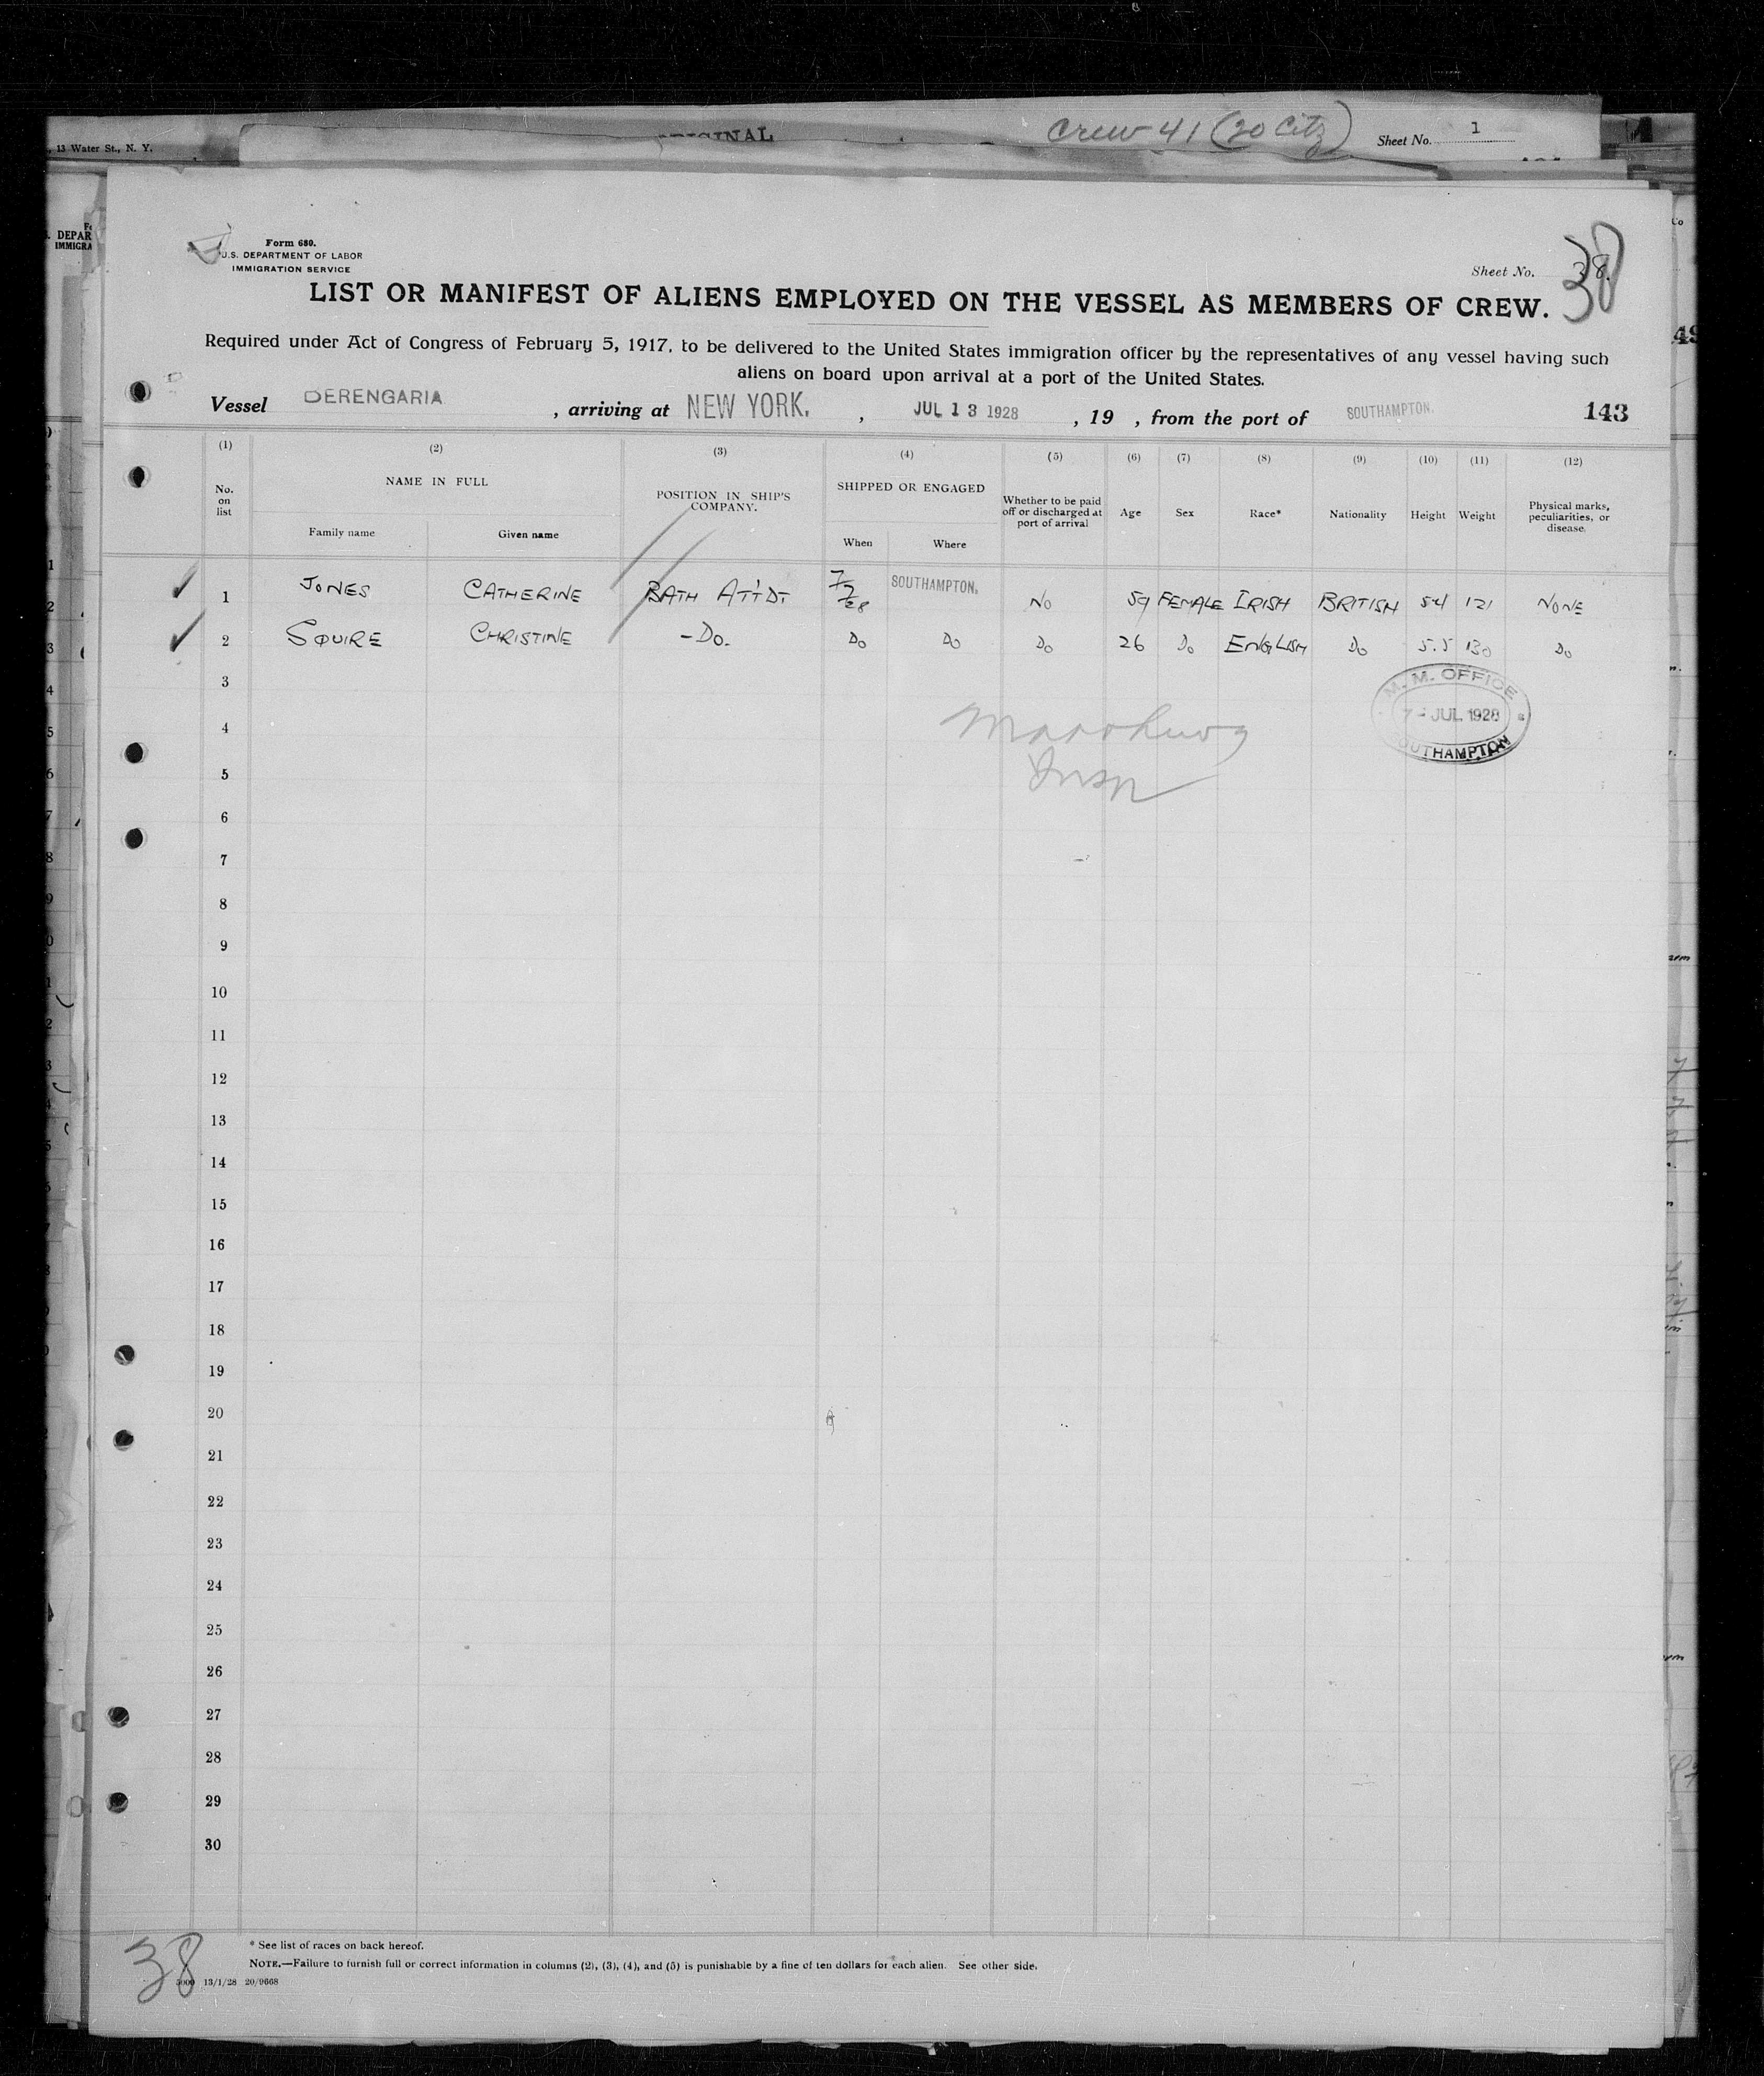 , 13 Water St., N. Y.
Crew 41 (20 Citz)
Sheet No. 1
DEPAR
IMMIGRA
Form 680.
U.S. DEPARTMENT OF LABOR
IMMIGRATION SERVICE
Sheet No. 38.
38
LIST OR MANIFEST OF ALIENS EMPLOYED ON THE VESSEL AS MEMBERS OF CREW.
Required under Act of Congress of February 5, 1917, to be delivered to the United States immigration officer by the representatives of any vessel having such
aliens on board upon arrival at a port of the United States.
Vessel BERENGARIA, arriving at NEW YORK. , JUL 13 1928, 19 , from the port of SOUTHAMPTON. 143
(1) (2) (3) (4) (5) (6) (7) (8) (9) (10) (11) (12)
No. on list NAME IN FULL POSITION IN SHIP'S COMPANY. SHIPPED OR ENGAGED Whether to be paid off or discharged at port of arrival Age Sex Race* Nationality Height Weight Physical marks, peculiarities, or disease.
Family name Given name When Where
1 JONES CATHERINE BATH ATT'DT 7/7/28 SOUTHAMPTON. NO 59 FEMALE IRISH BRITISH 5.4 121 NONE
2 SQUIRE CHRISTINE -DO. DO DO DO 26 DO ENGLISH DO 5.5 130 DO
3
M. M. OFFICE
7 - JUL 1928
SOUTHAMPTON
4
5
6
7
8
9
10
11
12
13
14
15
16
17
18
19
20
21
22
23
24
25
26
27
28
29
30
38
* See list of races on back hereof.
NOTE.—Failure to furnish full or correct information in columns (2), (3), (4), and (5) is punishable by a fine of ten dollars for each alien. See other side.
5000 13/1/28 20/9668